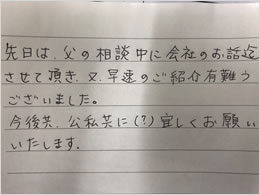 先日は、父の相談中に会社のお話迄
させて頂き、又、早速のご紹介有難う
ございました。
今後共、公私共に(?)宜しくお願い
いたします。